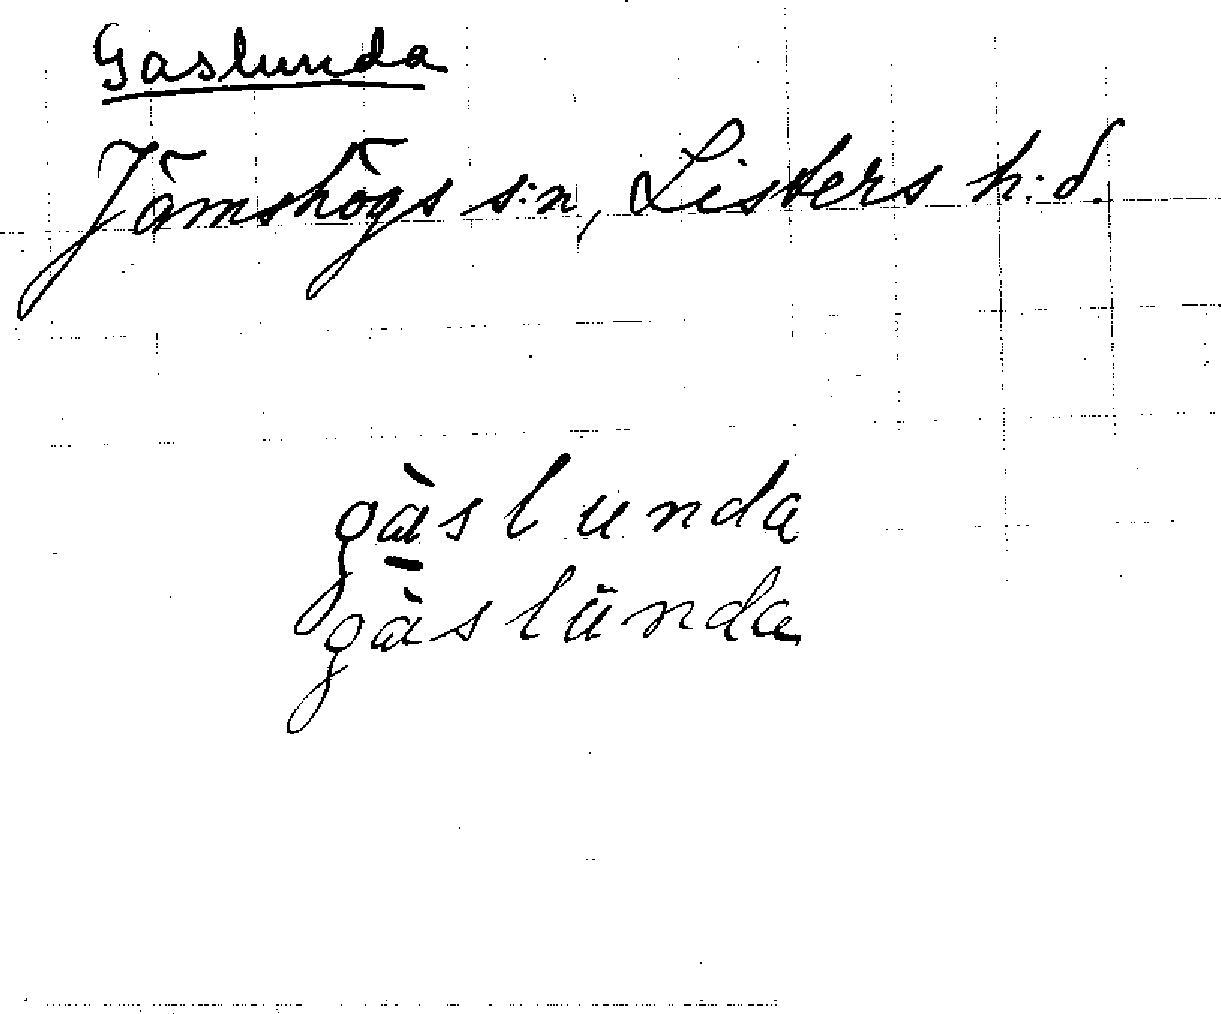 Gaslunda
Jämshögs s:n, Listers h:d.
gàslunda
gàslünda